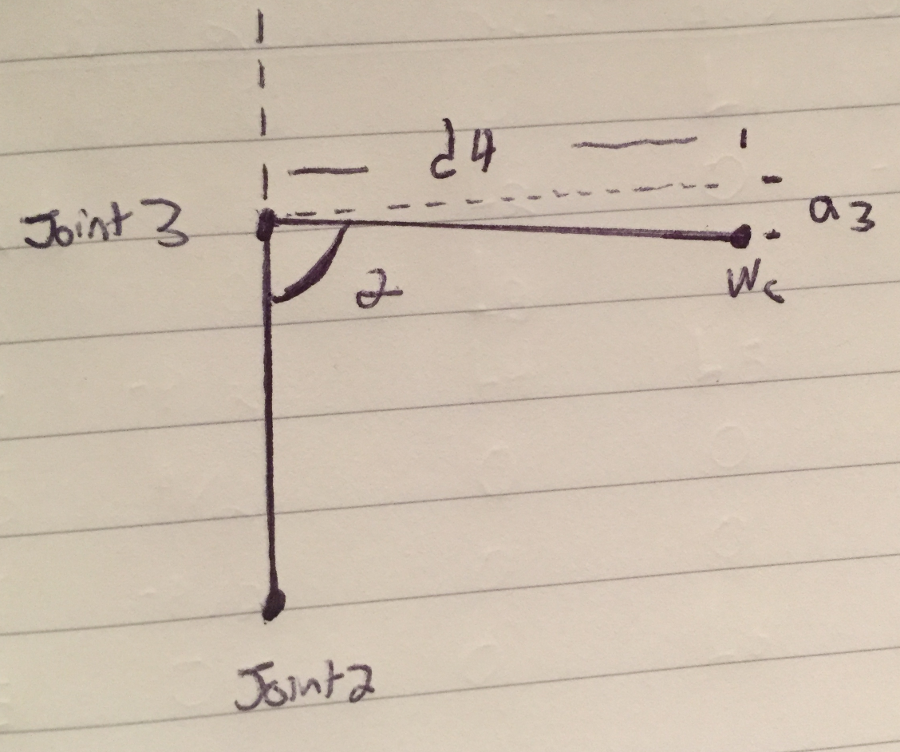 d4
Joint 3
a3
2
Wc
Joint 2